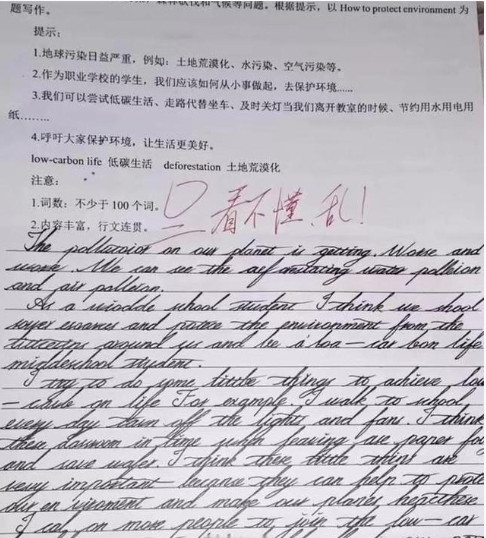 根据提示，以 How to protect environment 为
题写作。
提示：
1.地球污染日益严重，例如：土地荒漠化、水污染、空气污染等。
2.作为职业学校的学生，我们应该如何从小事做起，去保护环境......
3.我们可以尝试低碳生活、走路代替坐车、及时关灯当我们离开教室的时候、节约用水用电用
纸........
4.呼吁大家保护环境，让生活更美好。
low-carbon life 低碳生活 deforestation 土地荒漠化
注意：
1.词数：不少于 100 个词。
2.内容丰富，行文连贯。
0 看不懂,乱!
The pollutaioir on our planet is getting. Worse and
worse. We can see the water pollution
and air polletion.
As a school student I think we shool
and the environment from the
around us and be a loa-car bon life
student.
I try to do some little things to achieve low
- on life For example, I walk to school
every day turn off the lights and fans. I think
in time when leaving are paper
and save water. I think there little thint are
very important because they can help to prote
and make our planet
I cal on more people to join the low-car